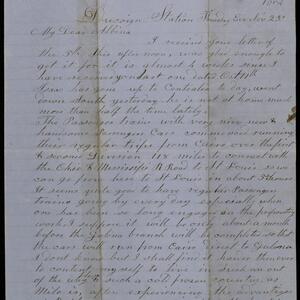 Ducoign Station Thursday Eve Nov 23d
1854
My Dear Albina
I receive your letter of
the 5th this after noon, was glad enough to
get it for it is almost 4 weeks since I
have received your last one dated Oct
Ira has gone up to Centralia to day, went
down South yesterday he is not at home much
more than half the time lately.
The Passenger train with very nice new &
handsome Passenger Cars commenced running
their regular trips from Cairo over the first
& second Division 118 miles to connect with
the Ohio & Mississippi R Road to St Louis so we
can go from here to St Louis in about 5 hours
It seems quite good to have regular Passenger
trains going by every day especially when
one has been so long engaged in the preparatory
work. I suppose it will be only about a month
before the grand trunk will be complete so that
the cars will run from Cairo direct to Galena
I dont know but I shall find it harder then ever
to content myself to live in such an out
of the way &
Mila is, after experiencing the advantages